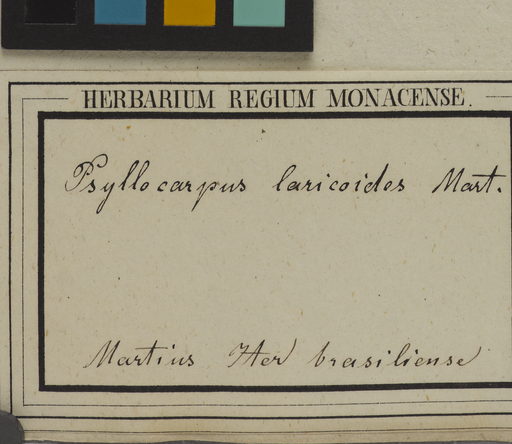 HERBARIUM REGIUM MONACENSE.
Psyllocarpus laricoides Mart.
Martius Iter brasiliense